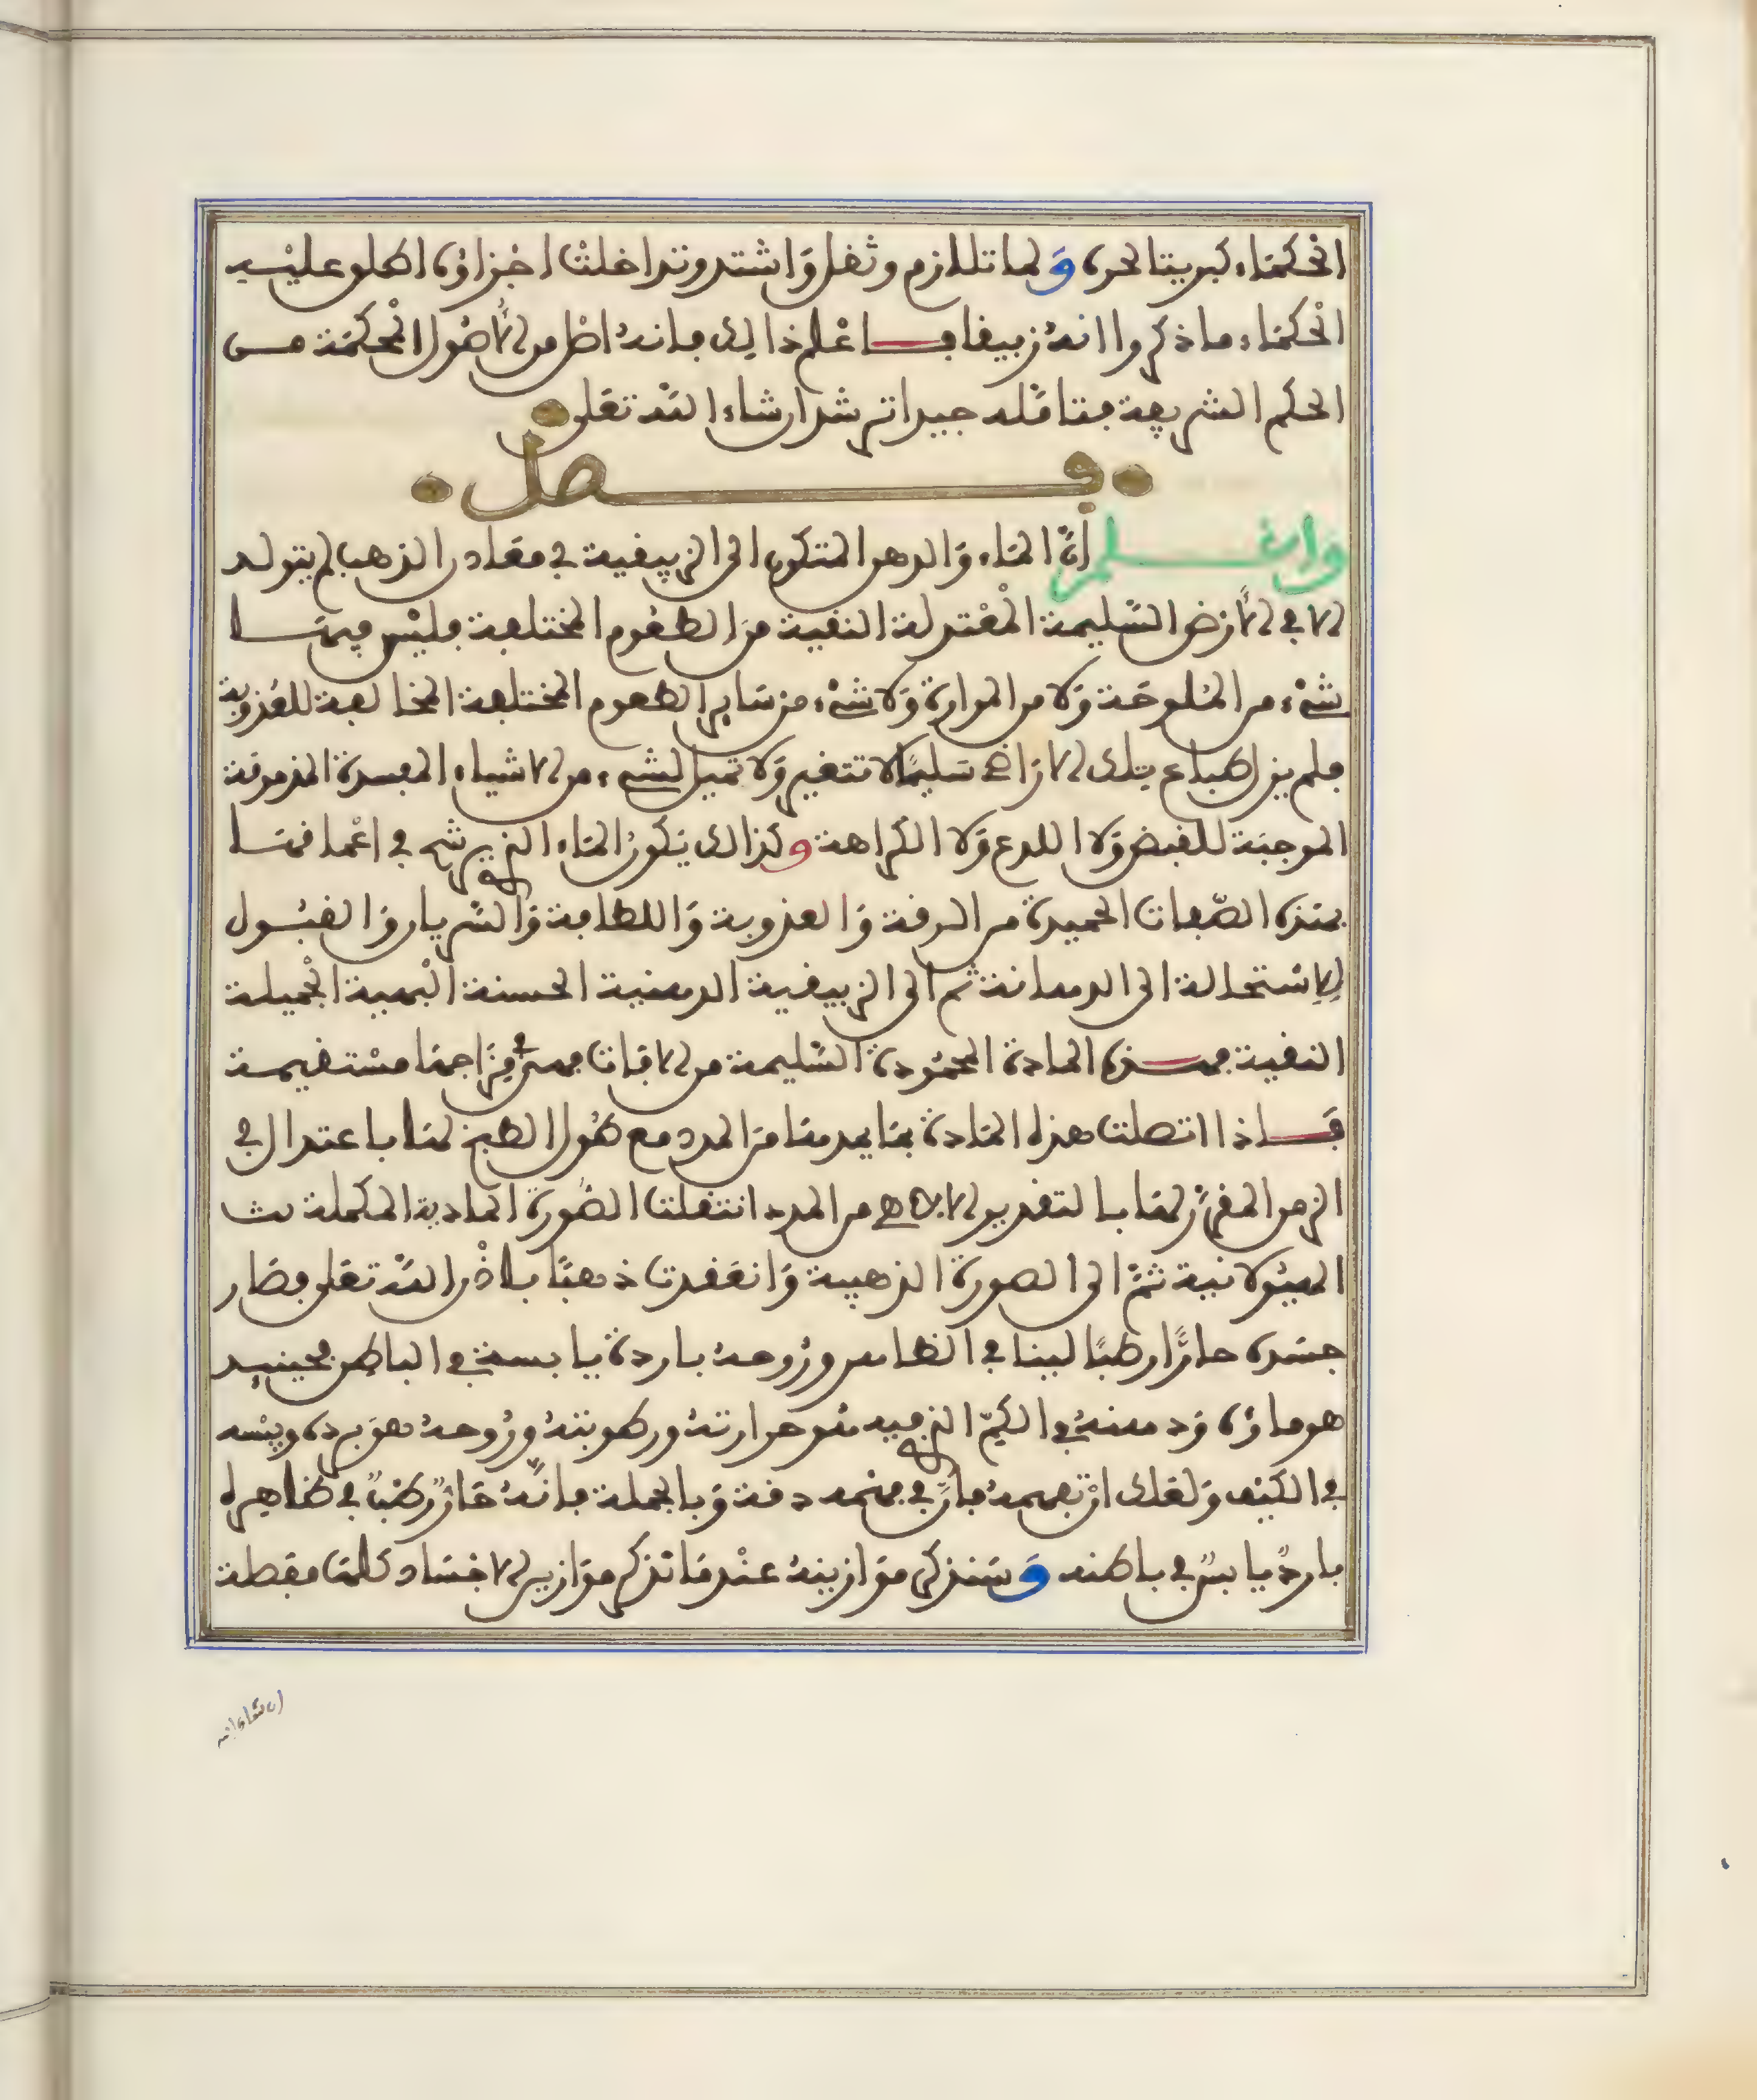 الحكماء كبريتا لحره ولما تللازم وثقل واشتد وتداخلت اجزاؤه اطلق عليه
الحكماء ما ذكروا انه زيبقا فاعلم ذالك فانه اصل من الاصول المحكمة مـن
الحكم الشريفة فتامله جيدا ترشد ان شاء الله تعلى
فصل
واعلم أن الماء والدهن المتكون الى الزيبقية في معادن الذهب لم يتولد
الا في الارض السليمة المعتدلة النقية من الطعوم المختلفة فليس فيهـا
شيء من الملوحة ولا من المرارة ولا شيء من ساير الطعوم المختلفة المخالفة للعذوبة
فلم يزل طباع تلك الاراضي سليما لا تتغير ولا تميل لشيء من الاشياء المفسدة المذمومة
الموجبة للقبض ولا اللدع ولا الكراهة وكذالك يكون الماء الذي يرشح في اعماقهـا
بهذه الصفات الحميدة من الرقة والعذوبة واللطافة والسريان والقبـول
للاستحالة الى الدهانة ثم الى الزيبقية الدهنية الحسنة البهية الجميلة
النقية فهـذه المادة المحمودة السليمة من الافات فهي في مزاجها مستقيمـة
فـاذا اتصلت هذه المادة بما يمدها من المدد مع طول الطبخ لها باعتدال في
الزمن المقرر لها بالتقدير الالاهي من المدد انتقلت الصورة المادية المكملة ث
الهيولانية ثم الى الصورة الذهبية وانعقدت ذهبا باذن الله تعلى فصار
جسده حارا رطبا لينا في الظاهر وروحه باردة يابسة في الباطن فحينيـد
هو ماؤه ودهنه في الكم الذي فيه هو حرارته ورطوبته وروحه هو برده ويبسه
في الكيف ولعلك ان تفهمه فان في فهمه دقة وبالجملة فانه حار رطب في ظاهره
بارد يابس في باطنه وسنذكر موازينه عند ما نذكر موازين الاجساد كلها مفصلة
ان شاء الله